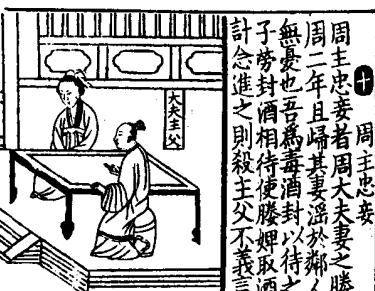 十 周主忠妾
周主忠妾者周大夫妻之媵
周二年且歸其妻淫於鄰人
無憂也吾爲毒酒封以待之
子勞封酒相待使媵婢取酒
計念進之則殺主父不義言
大夫主父